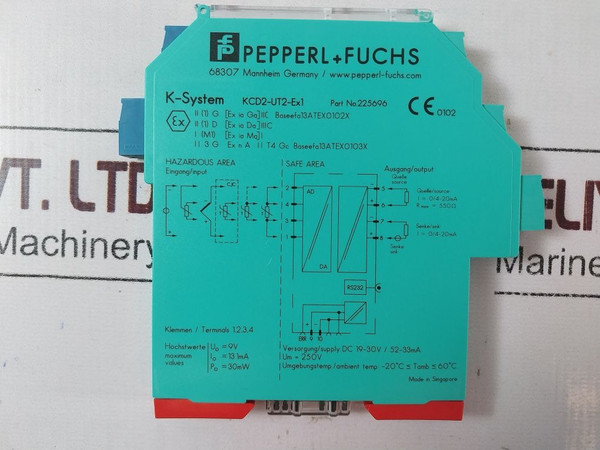 PEPPERL+FUCHS
68307 Mannheim Germany / www.pepperl-fuchs.com
K-System KCD2-UT2-Ex1 Part No.225696
CE 0102
Ex
II (1) G [Ex ia Ga] IIC Baseefa13ATEX0102X
II (1) D [Ex ia Da] IIIC
I (M1) [Ex ia Ma] I
II 3 G Ex n A II T4 Gc Baseefa13ATEX0103X
HAZARDOUS AREA
Eingang/input
SAFE AREA
Ausgang/output
Quelle
source
CJC
2
4
3
1
AD
DA
5
6
7
8
Quelle/source
I = 0/4-20mA
= 550Ω
Senke/sink
I = 0/4-20mA
Senke
sink
RS232
ERR 9 10
Klemmen / Terminals 1,2,3,4
Höchstwerte
maximum
values
U₀ = 9V
I₀ = 13.1mA
P₀ = 30mW
Versorgung/supply DC 19-30V / 52-33mA
Um = 250V
Umgebungstemp./ambient temp. -20°C ≤ Tamb ≤ 60°C
Made in Singapore
VT. LTD
Machinery
ELIV
Marine